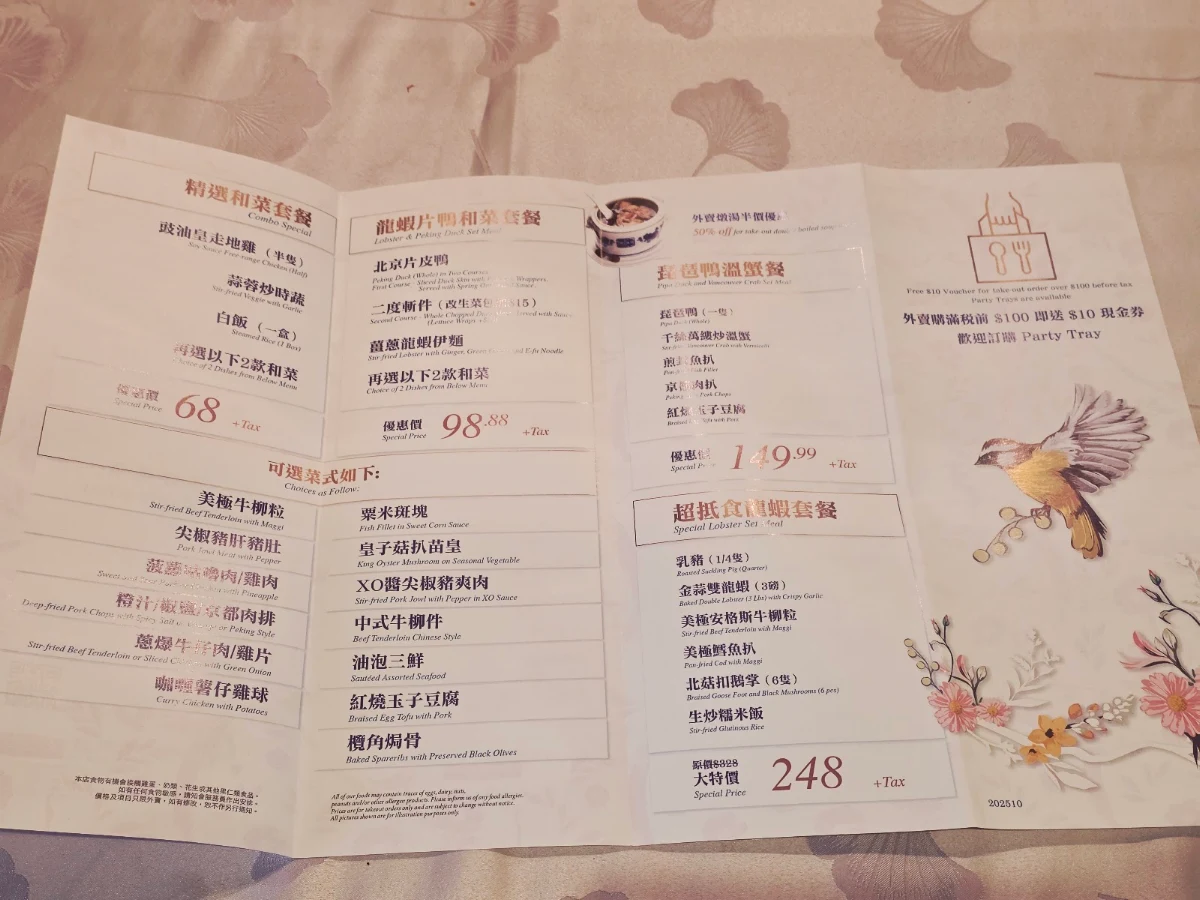 精選和菜套餐
Combo Special
豉油皇走地雞（半隻）
Soy Sauce Free-range Chicken (Half)
蒜蓉炒時蔬
Stir-fried Veggie with Garlic
白飯（一盒）
Steamed Rice (1 Box)
再選以下2款和菜
Choice of 2 Dishes from Below Menu
優惠價
Special Price
68 +Tax
龍蝦片鴨和菜套餐
Lobster & Peking Duck Set Meal
北京片皮鴨
Peking Duck (Whole) in Two Courses
First Course - Sliced Duck Skin with Wrappers,
Served with Spring
二度斬件（改生菜包 $15）
Second Course - Whole Chopped Duck Served with Sauce
(Lettuce Wraps
薑蔥龍蝦伊麵
Stir-fried Lobster with Ginger, Green and E-fu Noodle
再選以下2款和菜
Choice of 2 Dishes from Below Menu
優惠價
Special Price
98.88 +Tax
可選菜式如下:
Choices as Follow:
美極牛柳粒
Stir-fried Beef Tenderloin with Maggi
尖椒豬肝豬肚
Pork Jowl Meat with Pepper
菠蘿 嚕肉/雞肉
Sweet and with Pineapple
橙汁/椒鹽/京都肉排
Deep-fried Pork Chops with Spicy Salt or or Peking Style
蔥爆牛 肉/雞片
Stir-fried Beef Tenderloin or Sliced with Green Onion
咖喱薯仔雞球
Curry Chicken with Potatoes
粟米斑塊
Fish Fillet in Sweet Corn Sauce
皇子菇扒苗皇
King Oyster Mushroom on Seasonal Vegetable
XO醬尖椒豬爽肉
Stir-fried Pork Jowl with Pepper in XO Sauce
中式牛柳件
Beef Tenderloin Chinese Style
油泡三鮮
Sautéed Assorted Seafood
紅燒玉子豆腐
Braised Egg Tofu with Pork
欖角焗骨
Baked Spareribs with Preserved Black Olives
本店食物有機會接觸雞蛋、奶類、花生或其他果仁類食品。
如有任何食物敏感，請知會服務員作出安排。
價格及項目只限外賣，如有修改，恕不作另行通知。
All of our foods may contain traces of eggs, dairy, nuts,
peanuts and/or other allergen products. Please inform us of any food allergies.
Prices are for takeout orders only and are subject to change without notice.
All pictures shown are for illustration purposes only.
外賣燉湯半價優
50% off for take-out double boiled
琵琶鴨溫蟹餐
Pipa Duck and Vancouver Crab Set Meal
琵琶鴨（一隻）
Pipa Duck (Whole)
千絲萬縷炒溫蟹
Stir-fried Vancouver Crab with Vermicelli
煎 魚扒
Fish Fillet
京 肉扒
Peking Pork Chops
紅燒玉子豆腐
Braised Tofu with Pork
優惠價
Special Price
149.99 +Tax
超抵食龍蝦套餐
Special Lobster Set Meal
乳豬（1/4隻）
Roasted Suckling Pig (Quarter)
金蒜雙龍蝦（3磅）
Baked Double Lobster (3 Lbs) with Crispy Garlic
美極安格斯牛柳粒
Stir-fried Beef Tenderloin with Maggi
美極鱈魚扒
Pan-fried Cod with Maggi
北菇扣鵝掌（6隻）
Braised Goose Foot and Black Mushrooms (6 pcs)
生炒糯米飯
Stir-fried Glutinous Rice
原價$328
大特價
Special Price
248 +Tax
Free $10 Voucher for take-out order over $100 before tax
Party Trays are available
外賣購滿税前 $100 即送 $10 現金券
歡迎訂購 Party Tray
202510